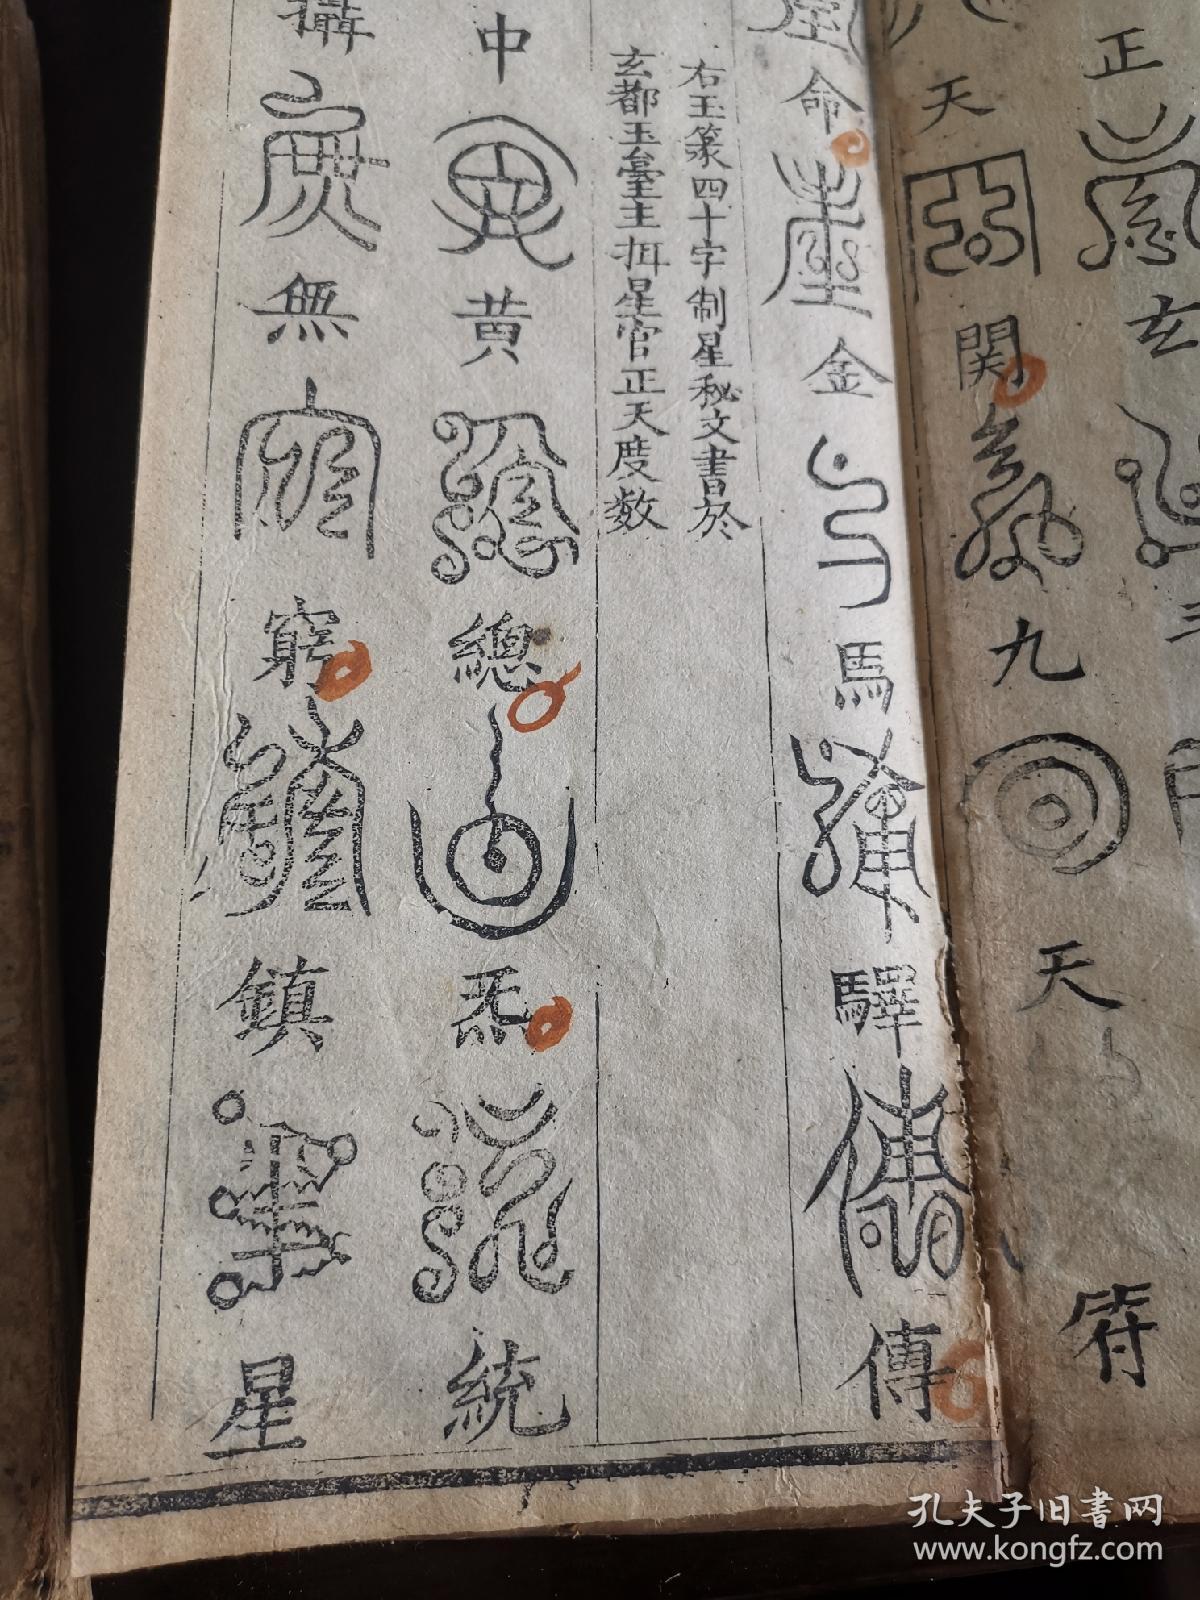 正
玄
三
天
関
九
天
符
命
金
馬
驛
傳
右玉篆四十字制星秘文書於
玄都玉臺主
星官正天度数
中
黄
總
炁
統
攝
無
窮
鎮
星
孔夫子旧书网
www.kongfz.com